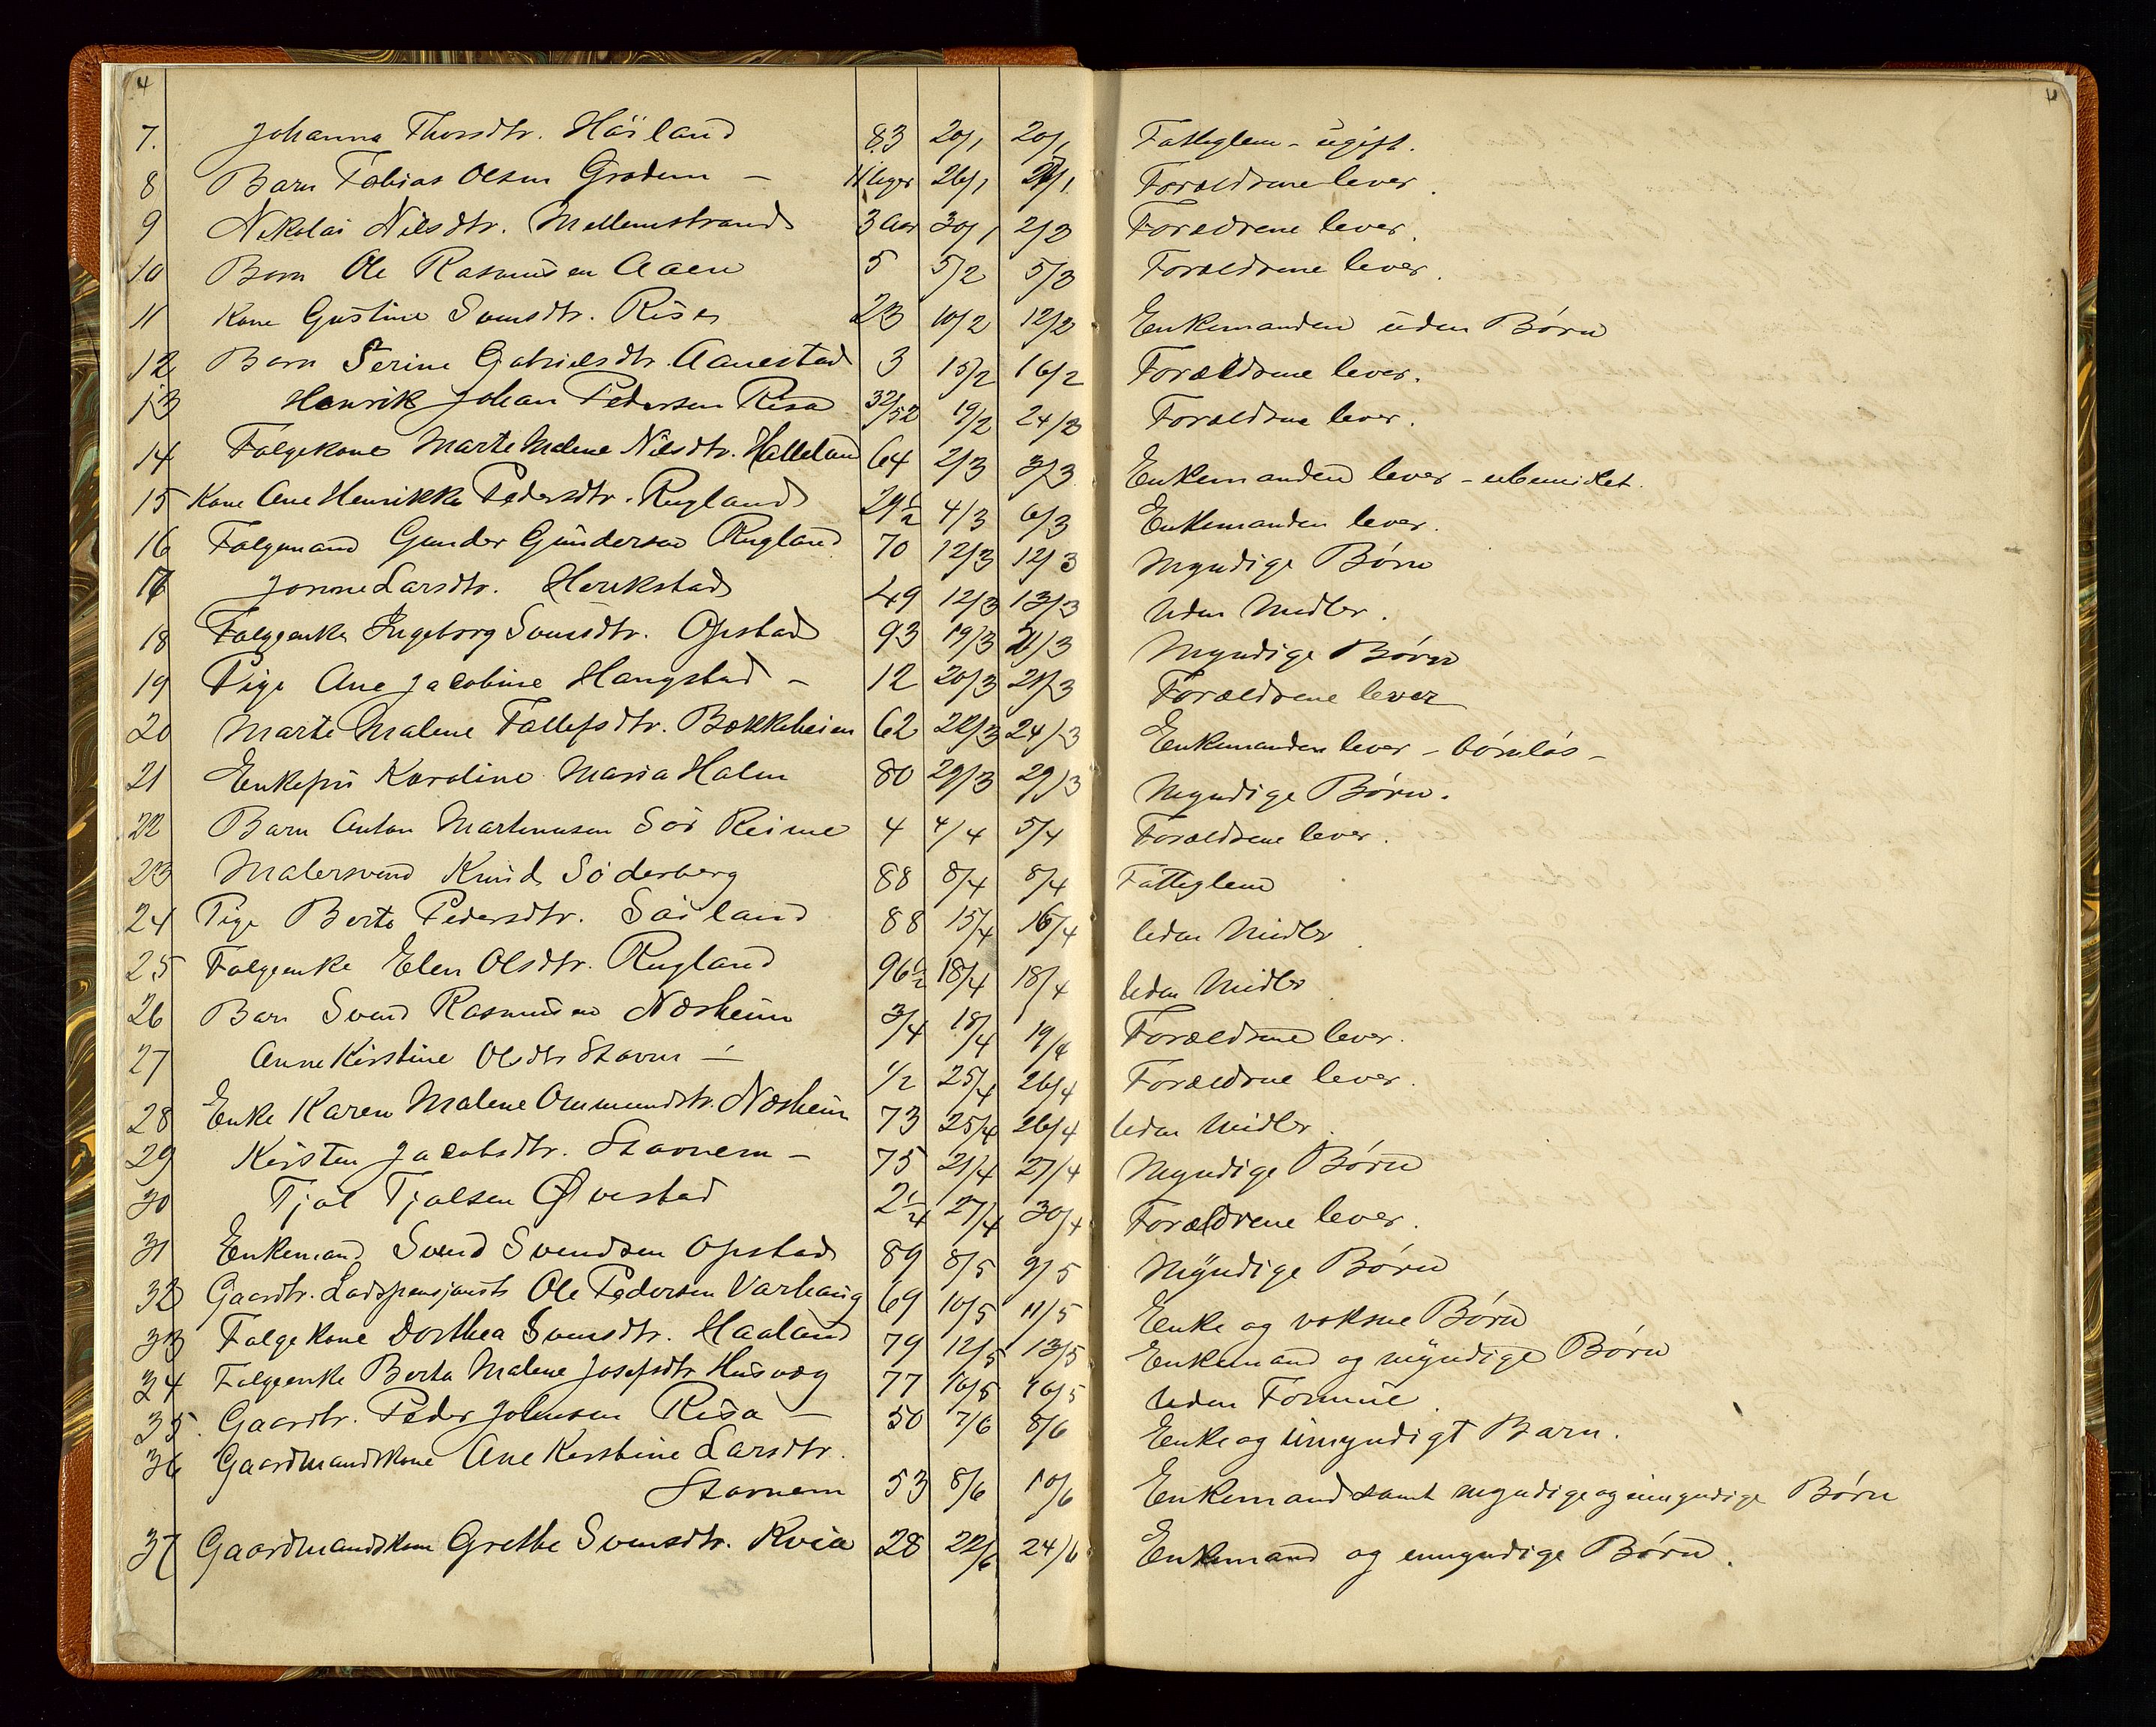 4
7. Johanna Thorsdtr. Håiland 83 20/1 20/1 Fattiglem - ugift.
8 Barn Tobias Olsen Grødem - 11 uger 26/1 27/1 Forældrene lever.
9 Nikolai Nilsdtr. Mellemstrand 3 Aar 30/1 2/2 Forældrene lever.
10 Barn Ole Rasmusen Aaen 5 5/2 5/2 Forældrene lever.
11 Kone Gustine Svensdtr. Risa 23 10/2 12/2 Enkemanden uden Børn
12 Barn Serine Gabrielsdtr. Aanestad 3 15/2 16/2 Forældrene lever.
13 Henrik Johan Pedersen Risa 32/52 19/2 24/2 Forældrene lever.
14 Følgekone Marte Malene Nilsdtr. Halleland 64 2/3 3/3 Enkemanden lever - ubemidlet.
15 Kone Ane Henrikke Pedersdtr. Rugland 29½ 4/3 6/3 Enkemanden lever.
16 Følgemand Gunder Gundersen Rugland 70 12/3 12/3 Myndige Børn
17 Jonine Larsdtr. Herikstad 49 12/3 13/3 Uden Midler.
18 Følgeenke Ingeborg Svensdtr. Opstad 93 19/3 21/3 Myndige Børn
19 Pige Ane Jacobine Haugstad - 12 20/3 21/3 Forældrene lever
20 Marte Malene Tollefsdtr. Bækkeheien 62 22/3 24/3 Enkemanden lever - børnløs -
21 Enkefru Karoline Maria Halm 80 29/3 29/3 Myndige Børn.
22 Barn Anton Martinusen Sør Reime 4 4/4 5/4 Forældrene lever.
23 Malersvend Knud Søderberg 88 8/4 8/4 Fattiglem
24 Pige Berta Pedersdtr. Søiland 88 15/4 16/4 Uden Midler
25 Følgeenke Elen Olsdtr. Rugland 96½ 18/4 18/4 Uden Midler
26 Barn Svend Rasmusen Nærheim 3/4 18/4 19/4 Forældrene lever.
27 Anne Kirstine Olsdtr Stavnem - 1/2 25/4 26/4 Forældrene lever.
28 Enke Karen Malene Ommundsdtr. Nærheim 73 25/4 26/4 Uden Midler.
29 Kirsten Jacobsdtr. Stavnem - 75 21/4 27/4 Myndige Børn
30 Tjøl Tjølsen Øvestad 2¼ 27/4 30/4 Forældrene lever.
31 Enkemand Svend Svendsen Opstad 89 8/5 9/5 Myndige Børn
32 Gaardbr. Ladspensjonist Ole Pedersen Varhaug 69 10/5 11/5 Enke og voksne Børn
33 Følgekone Dorthea Svensdtr. Haaland 79 12/5 13/5 Enkemand og myndige Børn
34 Følgeenke Berta Malene Josefsdtr Husvæg 77 16/5 16/5 Uden Formue.
35. Gaardbr. Peder Johnsen Risa - 50 7/6 8/6 Enke og umyndigt Barn.
36 Gaardmandskone Ane Kirstine Larsdtr.
Stavnem 53 8/6 10/6 Enkemand samt myndige og umyndige Børn
37 Gaardmandskone Grethe Svensdtr. Kvia 28 22/6 24/6 Enkemand og umyndige Børn.